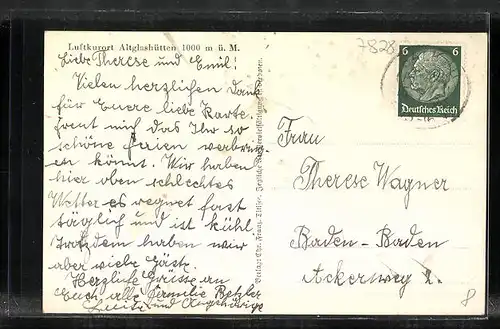 Luftkurort Altglashütten 1000 m ü. M.
Liebe Therese und Emil!
Vielen herzlichen Dank
für Euere liebe Karte
freut mich das Ihr so
schöne Ferien verbring-
en könnt. Wir haben
hier oben schlechtes
Wetter es regnet fast
täglich und ist kühl
Trotzdem haben wir
aber viele Gäste.
Herzliche Grüsse an
Euch alle Familie
und Angehörige
7828
6 6
Deutsches Reich
Frau
Therese Wagner
Baden-Baden
Ackerweg 2.
8